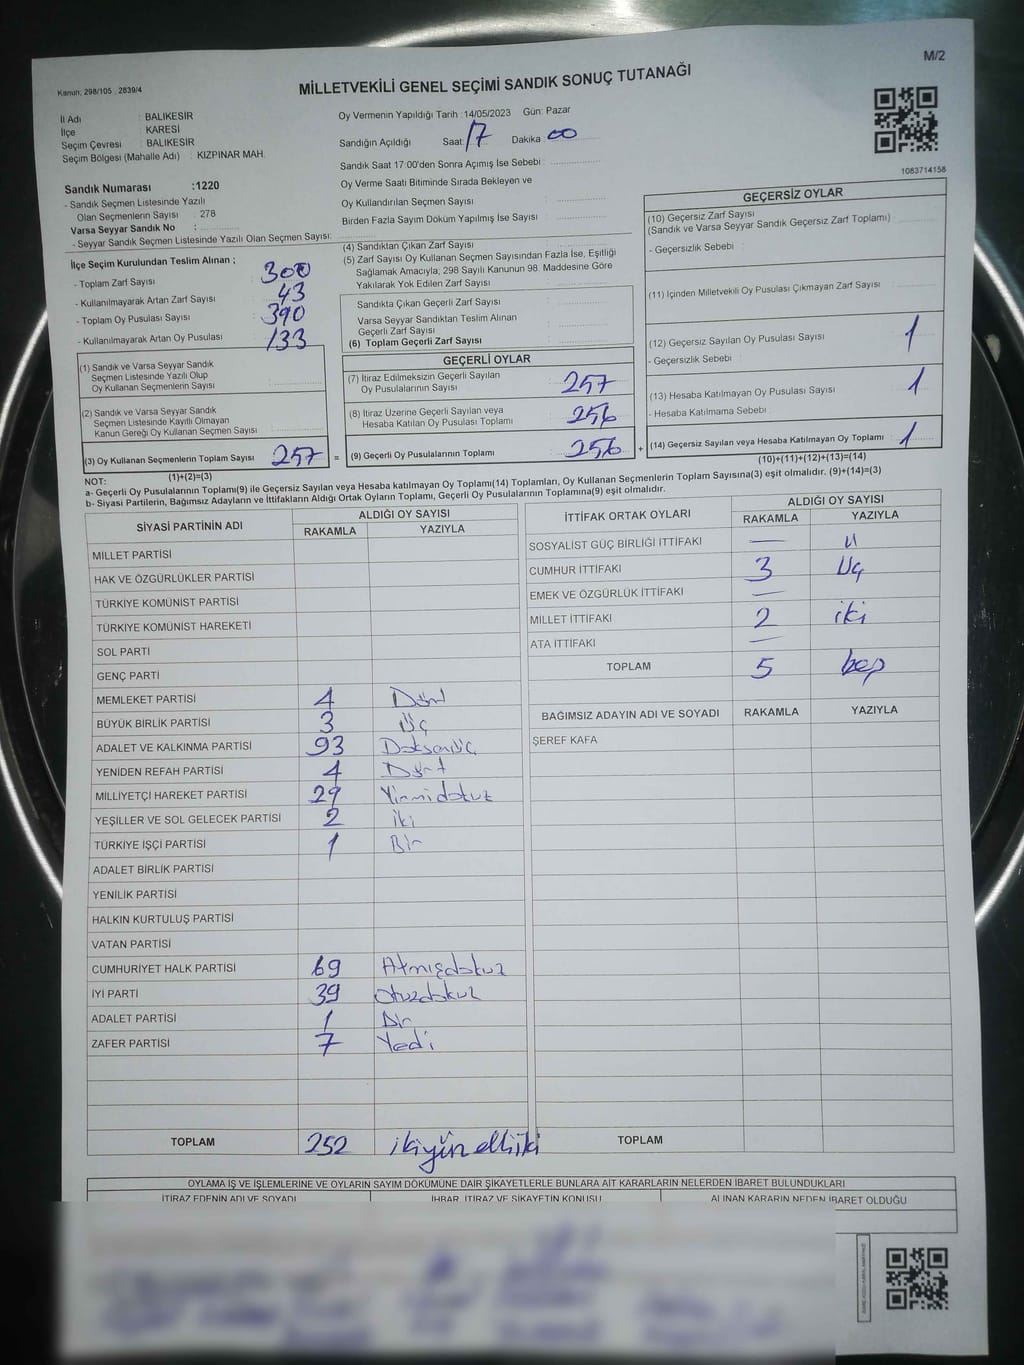 M/2
Kanun: 298/105 , 2839/4
MİLLETVEKİLİ GENEL SEÇİMİ SANDIK SONUÇ TUTANAĞI
İl Adı : BALIKESİR
İlçe : KARESİ
Seçim Çevresi : BALIKESİR
Seçim Bölgesi (Mahalle Adı) : KIZPINAR MAH.
Oy Vermenin Yapıldığı Tarih :14/05/2023 Gün: Pazar
Sandığın Açıldığı Saat: 17 Dakika: 00
Sandık Saat 17:00'den Sonra Açımış İse Sebebi :
Oy Verme Saati Bitiminde Sırada Bekleyen ve
Oy Kullandırılan Seçmen Sayısı
Birden Fazla Sayım Döküm Yapılmış İse Sayısı :
1083714158
Sandık Numarası :1220
- Sandık Seçmen Listesinde Yazılı
Olan Seçmenlerin Sayısı : 278
Varsa Seyyar Sandık No :
- Seyyar Sandık Seçmen Listesinde Yazılı Olan Seçmen Sayısı:
İlçe Seçim Kurulundan Teslim Alınan ;
- Toplam Zarf Sayısı : 300
- Kullanılmayarak Artan Zarf Sayısı : 43
- Toplam Oy Pusulası Sayısı : 390
- Kullanılmayarak Artan Oy Pusulası : 133
(1) Sandık ve Varsa Seyyar Sandık
Seçmen Listesinde Yazılı Olup
Oy Kullanan Seçmenlerin Sayısı :
(2) Sandık ve Varsa Seyyar Sandık
Seçmen Listesinde Kayıtlı Olmayan
Kanun Gereği Oy Kullanan Seçmen Sayısı :
(3) Oy Kullanan Seçmenlerin Toplam Sayısı 257 =
(1)+(2)=(3)
(4) Sandıktan Çıkan Zarf Sayısı :
(5) Zarf Sayısı Oy Kullanan Seçmen Sayısından Fazla İse, Eşitliği
Sağlamak Amacıyla; 298 Sayılı Kanunun 98. Maddesine Göre
Yakılarak Yok Edilen Zarf Sayısı :
Sandıkta Çıkan Geçerli Zarf Sayısı :
Varsa Seyyar Sandıktan Teslim Alınan
Geçerli Zarf Sayısı :
(6) Toplam Geçerli Zarf Sayısı :
GEÇERLİ OYLAR
(7) İtiraz Edilmeksizin Geçerli Sayılan
Oy Pusulalarının Sayısı : 257
(8) İtiraz Üzerine Geçerli Sayılan veya
Hesaba Katılan Oy Pusulası Toplamı : 256
(9) Geçerli Oy Pusulalarının Toplamı : 256 +
GEÇERSİZ OYLAR
(10) Geçersiz Zarf Sayısı
(Sandık ve Varsa Seyyar Sandık Geçersiz Zarf Toplamı)
- Geçersizlik Sebebi :
(11) İçinden Milletvekili Oy Pusulası Çıkmayan Zarf Sayısı :
(12) Geçersiz Sayılan Oy Pusulası Sayısı : 1
- Geçersizlik Sebebi :
(13) Hesaba Katılmayan Oy Pusulası Sayısı : 1
- Hesaba Katılmama Sebebi :
(14) Geçersiz Sayılan veya Hesaba Katılmayan Oy Toplamı : 1
(10)+(11)+(12)+(13)=(14)
NOT:
a- Geçerli Oy Pusulalarının Toplamı(9) ile Geçersiz Sayılan veya Hesaba katılmayan Oy Toplamı(14) Toplamları, Oy Kullanan Seçmenlerin Toplam Sayısına(3) eşit olmalıdır. (9)+(14)=(3)
b- Siyasi Partilerin, Bağımsız Adayların ve İttifakların Aldığı Ortak Oyların Toplamı, Geçerli Oy Pusulalarının Toplamına(9) eşit olmalıdır.
SİYASİ PARTİNİN ADI ALDIĞI OY SAYISI
RAKAMLA YAZIYLA
MİLLET PARTİSİ
HAK VE ÖZGÜRLÜKLER PARTİSİ
TÜRKİYE KOMÜNİST PARTİSİ
TÜRKİYE KOMÜNİST HAREKETİ
SOL PARTİ
GENÇ PARTİ
MEMLEKET PARTİSİ 4 Dört
BÜYÜK BİRLİK PARTİSİ 3 Üç
ADALET VE KALKINMA PARTİSİ 93 Doksanüç
YENİDEN REFAH PARTİSİ 4 Dört
MİLLİYETÇİ HAREKET PARTİSİ 29 Yirmidokuz
YEŞİLLER VE SOL GELECEK PARTİSİ 2 iki
TÜRKİYE İŞÇİ PARTİSİ 1 Bir
ADALET BİRLİK PARTİSİ
YENİLİK PARTİSİ
HALKIN KURTULUŞ PARTİSİ
VATAN PARTİSİ
CUMHURİYET HALK PARTİSİ 69 Atmışdokuz
İYİ PARTİ 39 otuzdokuz
ADALET PARTİSİ 1 Bir
ZAFER PARTİSİ 7 Yedi
TOPLAM 252 ikiyüzelliiki
İTTİFAK ORTAK OYLARI ALDIĞI OY SAYISI
RAKAMLA YAZIYLA
SOSYALİST GÜÇ BİRLİĞİ İTTİFAKI —
CUMHUR İTTİFAKI 3 Üç
EMEK VE ÖZGÜRLÜK İTTİFAKI —
MİLLET İTTİFAKI 2 iki
ATA İTTİFAKI —
TOPLAM 5 beş
BAĞIMSIZ ADAYIN ADI VE SOYADI RAKAMLA YAZIYLA
ŞEREF KAFA
TOPLAM
OYLAMA İŞ VE İŞLEMLERİNE VE OYLARIN SAYIM DÖKÜMÜNE DAİR ŞİKAYETLERLE BUNLARA AİT KARARLARIN NELERDEN İBARET BULUNDUKLARI
İTİRAZ EDENİN ADI VE SOYADI İHBAR, İTİRAZ VE ŞİKAYETİN KONUSU ALINAN KARARIN NEDEN İBARET OLDUĞU